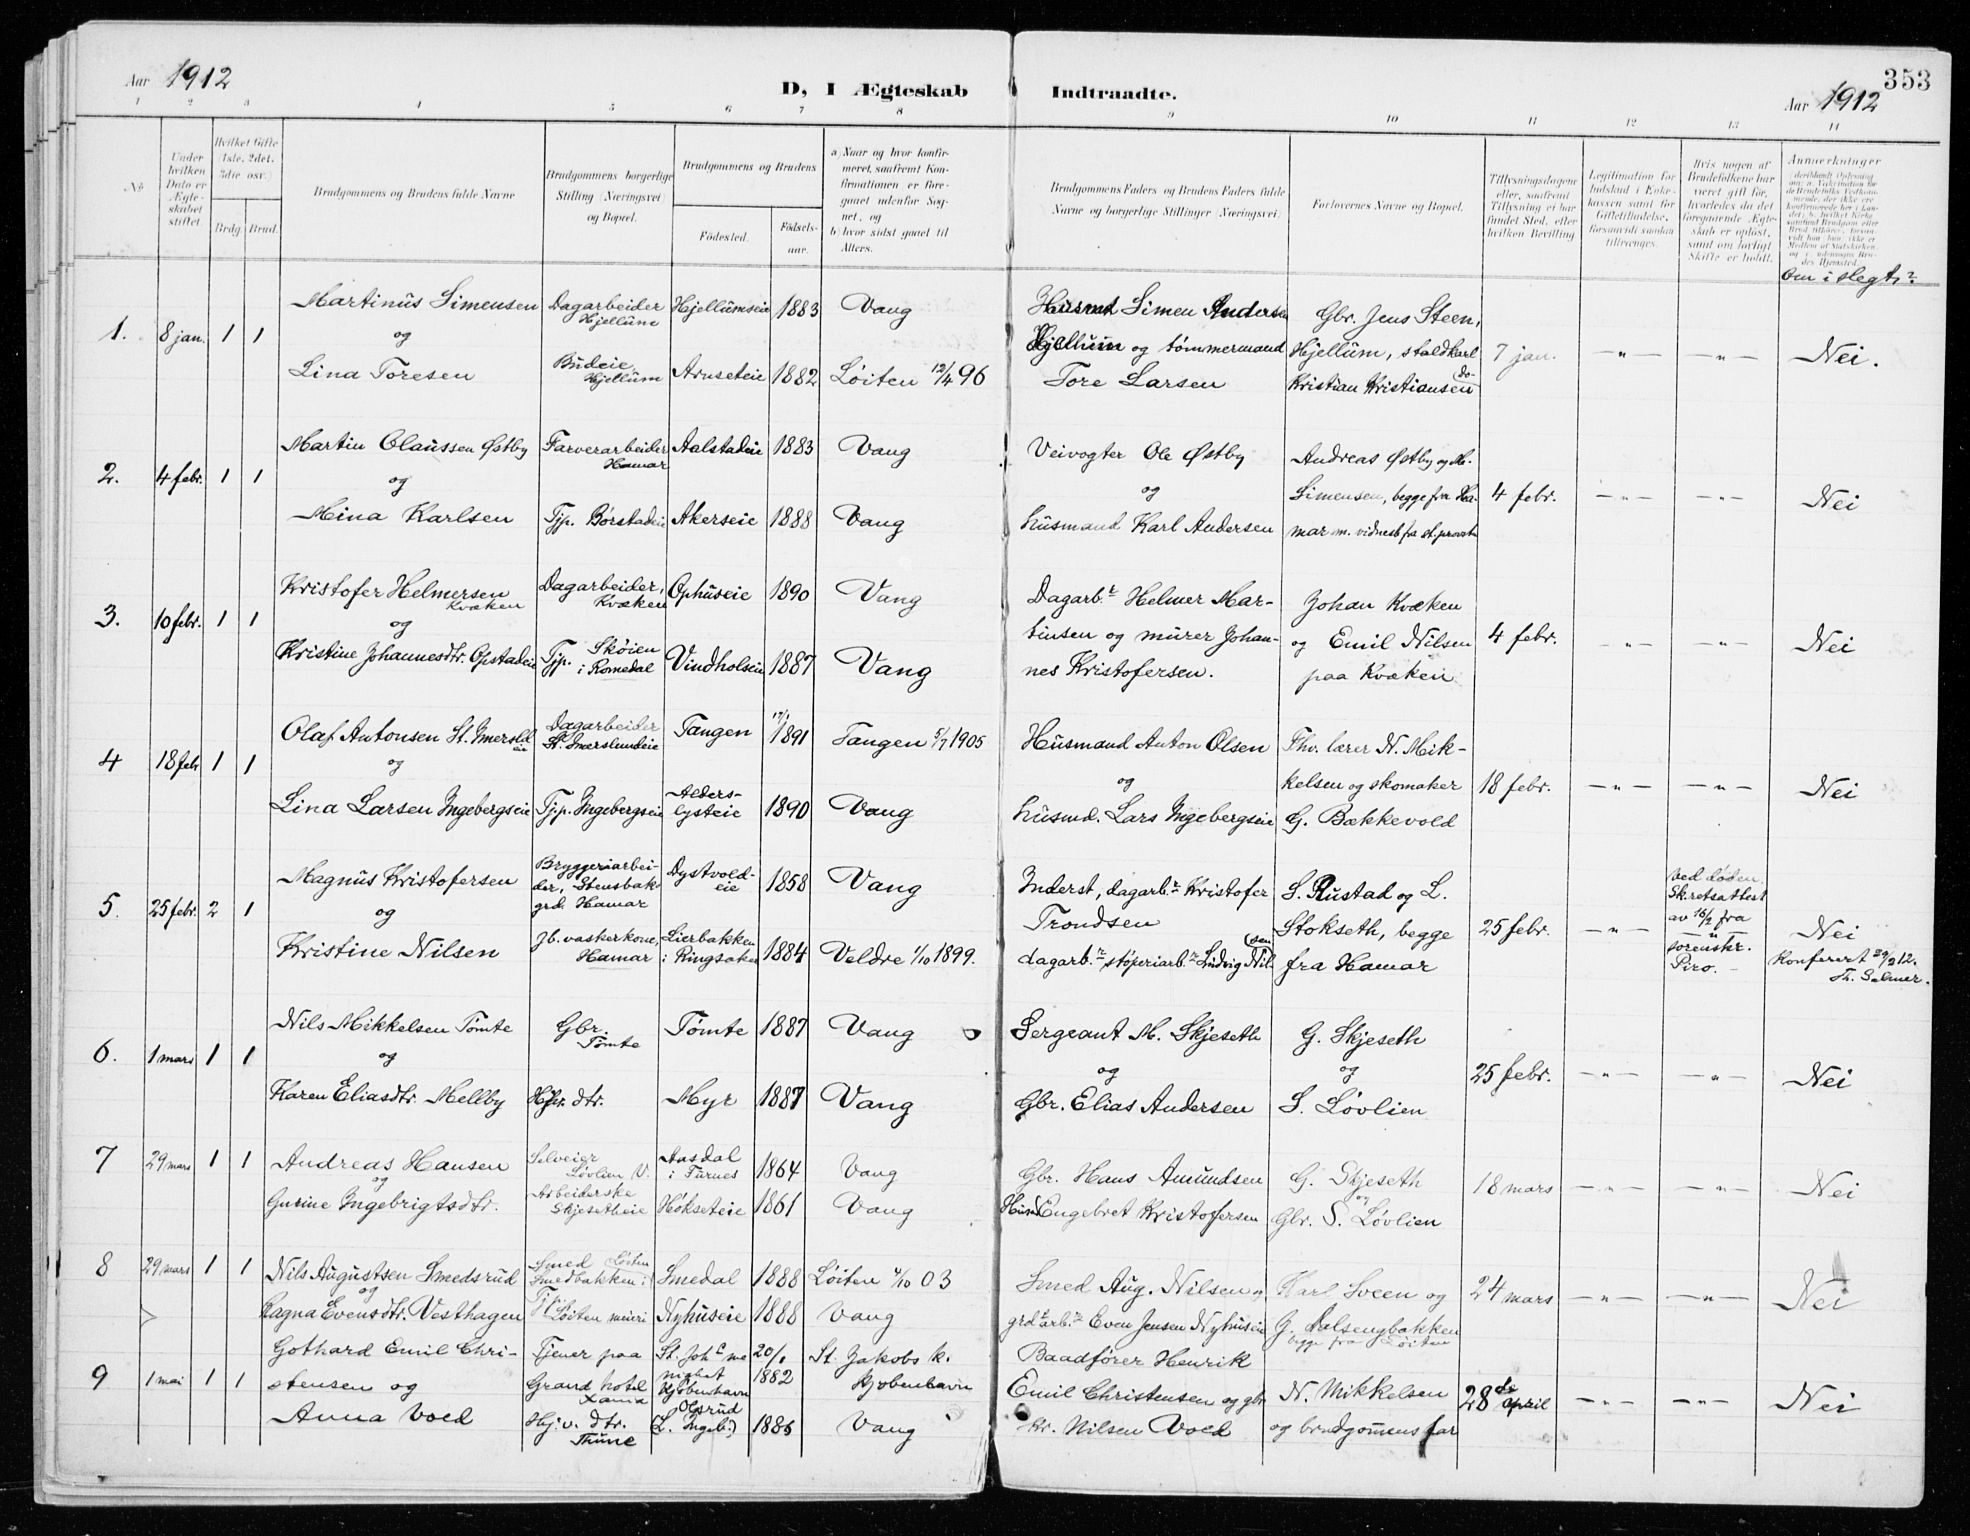 353
Aar 1912
D, I Ægteskab Indtraadte.
Aar 1912
1 2 3 4 5 6 7 8 9 10 11 12 13 14
No
Under hvilken Dato er Ægteskabet stiftet.
Hvilket Gifte 1ste. 2det. 3die osv.)
Brdg. Brud.
Brudgommens og Brudens fulde Navne
Brudgommens borgerlige Stilling (Næringsvei) og Bopæl.
Brudgommens og Brudens
Fødested. Fødselsaar.
a) Naar og hvor konfirmeret, saafremt Konfirmationen er foregaaet udenfor Sognet, og
b) hvor sidst gaaet til Alters.
Brudgommens Faders og Brudens Faders fulde Navne og borgerlige Stillinger (Næringsvei).
Forlovernes Navne og Bopæl.
Tillysningsdagene eller, saafremt Tillysning ei har fundet Sted, efter hvilken Bevilling
Legitimation for Indskud i Enkekassen samt for Giftetilladelse, forsaavidt saadan tiltrænges.
Hvis nogen af Brudefolkene har været gift før, hvorledes da det foregaaende Ægteskab er opløst, samt om lovligt Skifte er holdt.
Anmerkninger
Om i slegt?
1. 8 jan. 1 1
Martinus Simensen Dagarbeider Hjellum Hjellumseie 1883 Vang
og
Lina Toresen Budeie Hjellum Arnseteie 1882 Løiten 12/4 96
Husmd Simen Andersen
Hjellum og tømmermand
Tore Larsen
Gbr. Jens Steen,
Hjellum, staldkarl
Kristian Kristiansen do-
7 jan. —„— —„— Nei.
2. 4 febr. 1 1
Martin Olaussen Østby Farverarbeider Hamar Aalstadeie 1883 Vang
og
Mina Karlsen Tjp. Børstadeie Akerseie 1888 Vang
Veivogter Ole Østby
og
husmand Karl Andersen
Andreas Østby og M.
Simensen, begge fra Ha-
mar m. vidnesb fra st. provsten
4 febr. —„— —„— Nei
3. 10 febr. 1 1
Kristofer Helmersen Kvæken Dagarbeider, Kvæken Ophuseie 1890 Vang
og
Kristine Johannesdtr. Opstadeie Tjp. Skøien i Romedal Vindholseie 1887 Vang
Dagarb.r Helmer Mar-
tinsen og murer Johan-
nes Kristofersen.
Johan Kvæken
og Emil Nilsen
paa Kvæken
4 febr. —„— —„— Nei
4 18 febr 1 1
Olaf Antonsen St. Imersldeie Dagarbeider St. Imerslundeie Tangen 1891 Tangen 5/7 1905
og
Lina Larsen Ingebergseie Tjp. Ingebergseie Alders-lysteie 1890 Vang
Husmand Anton Olsen
og
husmd. Lars Ingebergseie
Fhv. lærer N. Mik-
kelsen og skomaker
G. Bækkevold
18 febr. —„— —„— Nei
5. 25 febr. 2 1
Magnus Kristofersen Bryggeriarbei-der, Stensbak-grd. Hamar Dystvold-eie 1858 Vang
og
Kristine Nilsen Jb. vaskerkone, Hamar Lierbakken i Ringsaker 1884 Veldre 1/10 1899.
Inderst, dagarb.r Kristofer
Trondsen
dagarb.r støperiarb.r Ludvig Nilsen
S. Rustad og L.
Stokseth, begge
fra Hamar
25 febr. —„—
ved døden.
Sk.retsattest
av 16/2 fra
—„—
sorenskr.
Piro.
Nei
Konferert 29/2 12.
Th. Selmer.
6. 1 mars 1 1
Nils Mikkelsen Tømte Gbr. Tømte Tømte 1887 Vang
og
Karen Eliasdtr. Mellby Gbr. dtr. Myr 1887 Vang
Sergeant M. Skjeseth
og
Gbr. Elias Andersen
G. Skjeseth
og
S. Løvlien
25 febr. —„— —„— Nei
7 29 mars 1 1
Andreas Hansen Selveier Løvlien V. Aasdal i Furnes 1864 Vang
og
Gurine Ingebrigtsdtr. Arbeiderske Skjesetheie Hokseteie 1861 Vang
Gbr. Hans Amundsen
Husm Engebret Kristofersen
G. Skjeseth
og
Gbr. S. Løvlien
18 mars —„— —„— Nei
8 29 mars 1 1
Nils Augustsen Smedsrud Smed Løiten Smedbakken i Smedal 1888 Løiten 4/10 03
og
Ragna Evensdtr. Vesthagen Tjp. Løiten meieri Nyhuseie 1888 Vang
Smed Aug. Nilsen,
grd arb.r Even Jensen Nyhuseie
Karl Sveen og
G. Dalsengbakken
begge fra Løiten
24 mars —„— —„— Nei
9 1 mai 1 1
Gothard Emil Chri-stensen og Tjener paa Grand hotel Xania 20/1 1882 St. Jakobs k. Kjøbenhavn
Anna Voed Hj. v. dtr. Thune Olsrud (L. Ingeb.) 1886 Vang
Baadfører Henrik
Emil Christensen og gbr
Kr. Nilsen Voed
N. Mikkelsen
og brudgommens far
28de april —„— —„— Nei